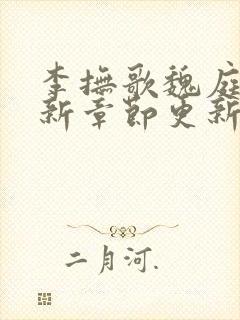 李撫歌魏庭
新章節更新
二月河.